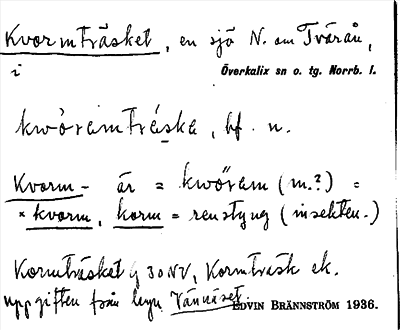 Kvormträsket, en sjö N. om Tvärån,
i Överkalix sn o. tg. Norrb. l.
kwòramtráska, bf. n.
Kvorm- är = kwőram (m.?) =
* kvorm, korm = renstyng (insekten.)
Kormträsket G 30 NV, Kormträsk ek.
uppgiften från byn Vännäset.
EDVIN BRÄNNSTRÖM 1936.